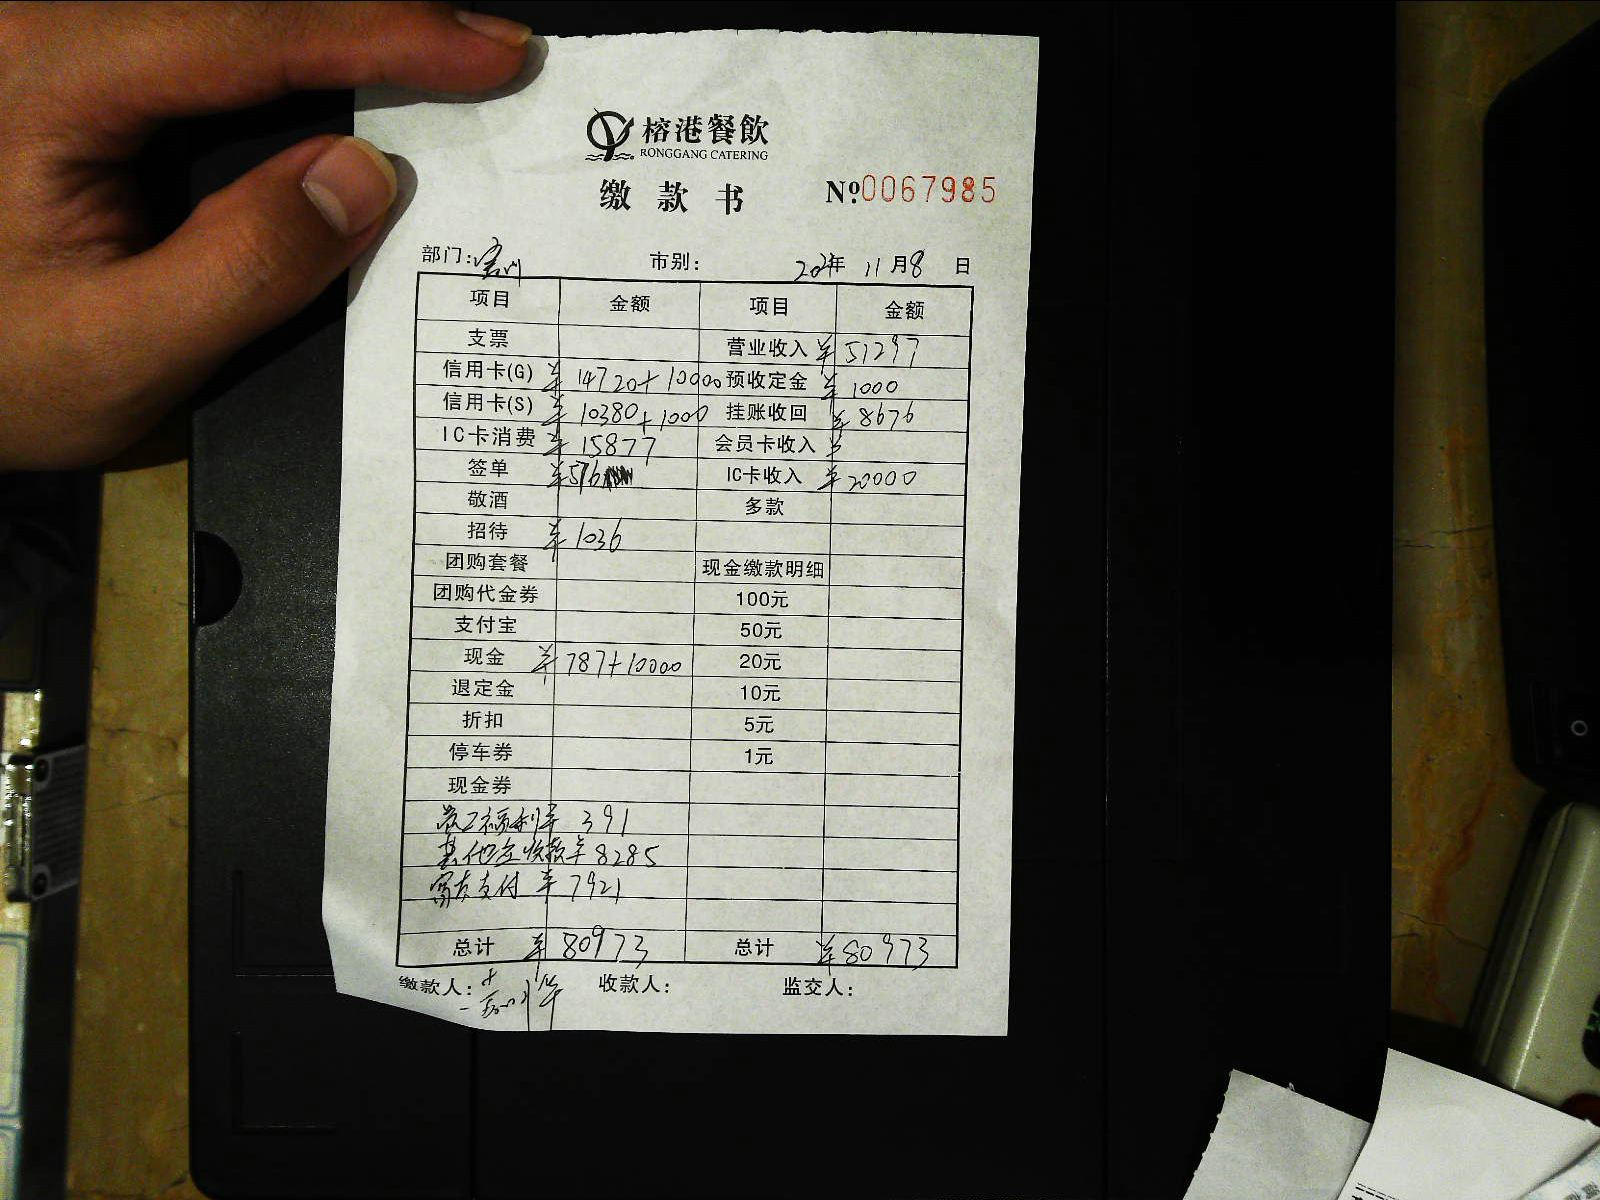 榕港餐飲
RONGGANG CATERING
缴款书 №0067985
部门: 市别: 年 11月8日
项目 金额 项目 金额
支票 营业收入 ¥51297
信用卡(G) ¥14720+10000 预收定金 ¥1000
信用卡(S) ¥10380+1000 挂账收回 ¥8676
IC卡消费 ¥15877 会员卡收入 ¥
签单 ¥576 IC卡收入 ¥20000
敬酒 多款
招待 ¥1036
团购套餐 现金缴款明细
团购代金券 100元
支付宝 50元
现金 ¥787+10000 20元
退定金 10元
折扣 5元
停车券 1元
现金券
员工福利 ¥391
其他应收款 ¥8285
富友支付 ¥7921
总计 ¥80973 总计 ¥80973
缴款人: 收款人: 监交人: